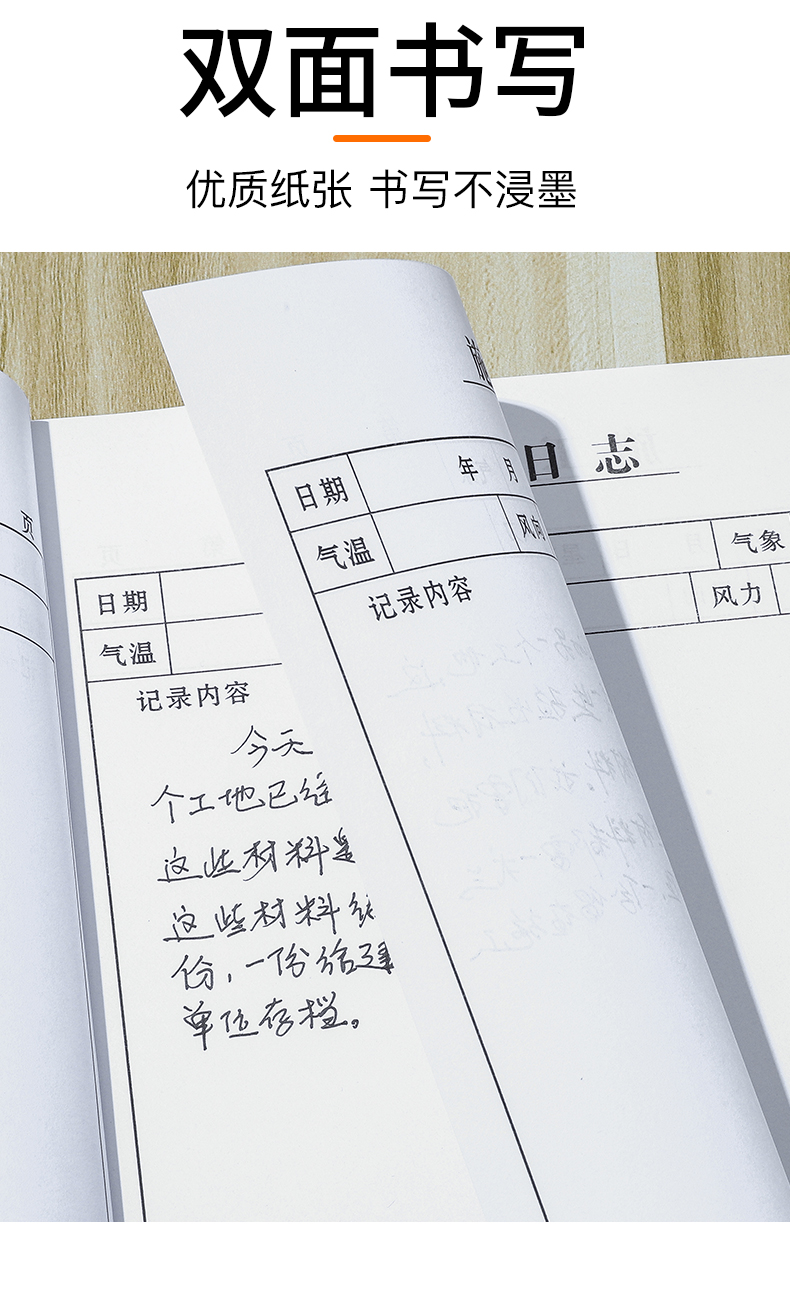 双面书写
优质纸张 书写不浸墨
日志
日期 年 月
气温 风向
记录内容
气象
风力
页
日期
气温
记录内容
今天
个工地已经
这些材料是
这些材料
份,一份给建
单位存档。